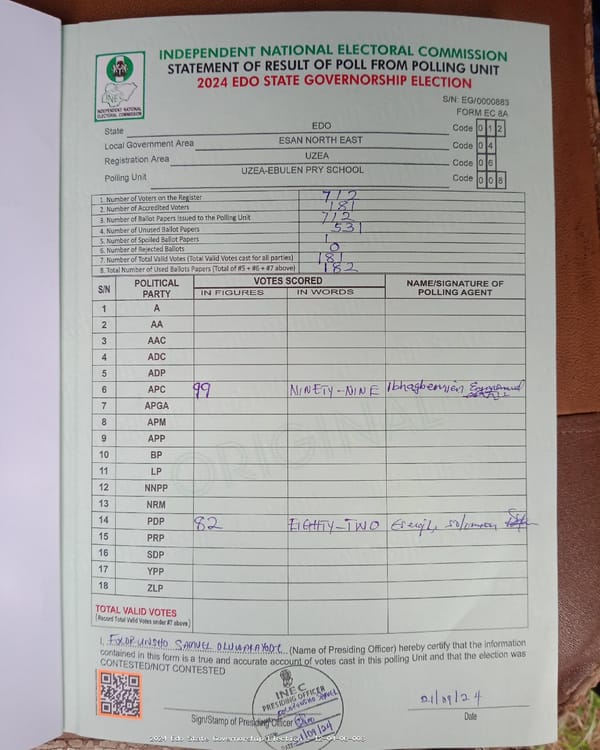 INDEPENDENT NATIONAL ELECTORAL COMMISSION
STATEMENT OF RESULT OF POLL FROM POLLING UNIT
2024 EDO STATE GOVERNORSHIP ELECTION
INEC
INDEPENDENT NATIONAL
ELECTORAL COMMISSION
S/N: EG/0000883
FORM EC 8A
State EDO Code 0 1 2
Local Government Area ESAN NORTH EAST Code 0 4
Registration Area UZEA Code 0 6
Polling Unit UZEA-EBULEN PRY SCHOOL Code 0 0 8
1. Number of Voters on the Register 712
2. Number of Accredited Voters 181
3. Number of Ballot Papers Issued to the Polling Unit 712
4. Number of Unused Ballot Papers 531
5. Number of Spoiled Ballot Papers 1
6. Number of Rejected Ballots 0
7. Number of Total Valid Votes (Total Valid Votes cast for all parties) 181
8. Total Number of Used Ballots Papers (Total of #5 + #6 + #7 above) 182
S/N POLITICAL PARTY VOTES SCORED NAME/SIGNATURE OF POLLING AGENT
IN FIGURES IN WORDS
1 A
2 AA
3 AAC
4 ADC
5 ADP
6 APC 99 NINETY-NINE Ibhagbemien
7 APGA
8 APM
9 APP
10 BP
11 LP
12 NNPP
13 NRM
14 PDP 82 EIGHTY-TWO
15 PRP
16 SDP
17 YPP
18 ZLP
ORIGINAL
TOTAL VALID VOTES
(Record Total Valid Votes under #7 above)
I, FOLORUNSHO SAMUEL (Name of Presiding Officer) hereby certify that the information
contained in this form is a true and accurate account of votes cast in this polling Unit and that the election was
CONTESTED/NOT CONTESTED
INEC
PRESIDING OFFICER
21/09/24
21/09/24
Sign/Stamp of Presiding Officer
Date
2024 Edo State Governorship Election